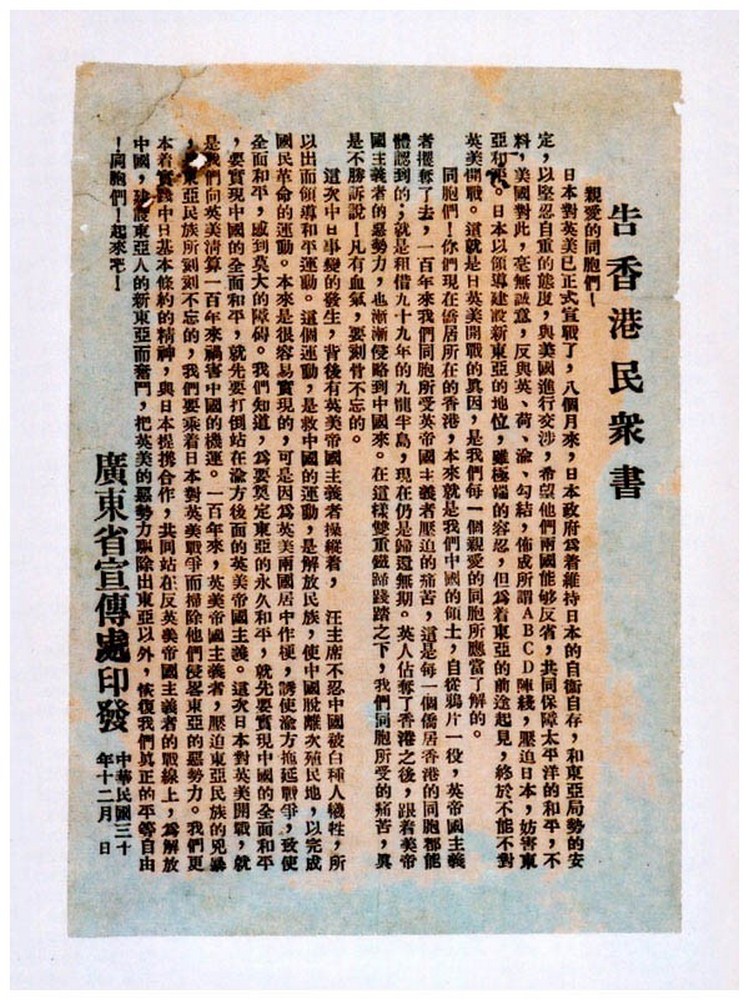 告香港民衆書
親愛的同胞們！
日本對英美已正式宣戰了，八個月來，日本政府爲着維持日本的自衛自存，和東亞局勢的安
定，以堅忍自重的態度，與美國進行交涉，希望他們兩國能够反省，共同保障太平洋的和平，不
料，美國對此，毫無誠意，反與英、荷、渝、勾結，佈成所謂ＡＢＣＤ陣綫，壓迫日本，妨害東
亞和。日本以領導建設新東亞的地位，雖極端的容忍，但爲着東亞的前途起見，終於不能不對
英美開戰。這就是日英美開戰的眞因，是我們每一個親愛的同胞所應當了解的。
同胞們！你們現在僑居所在的香港，本來就是我們中國的領土，自從鴉片一役，英帝國主義
者攫奪了去，一百年來我們同胞所受英帝國主義者壓迫的痛苦，這是每一個僑居香港的同胞都能
體認到的；就是租借九十九年的九龍半島，現在仍是歸還無期。英人佔奪了香港之後，跟着美帝
國主義者的惡勢力，也漸漸侵略到中國來。在這樣雙重鐵蹄踐踏之下，我們同胞所受的痛苦，眞
是不勝訴說！凡有血氣，要刻骨不忘的。
這次中日事變的發生，背後有英美帝國主義者操縱着，　汪主席不忍中國被白種人犧牲，所
以出面領導和平運動。這個運動，是救中國的運動，是解放民族，使中國脫離次殖民地，以完成
國民革命的運動。本來是很容易實現的，可是因爲英美兩國居中作梗，誘使渝方拖延戰爭，致使
全面和平，感到莫大的障碍。我們知道，爲要奠定東亞的永久和平，就先要實現中國的全面和平
，要實現中國的全面和平，就先要打倒站在渝方後面的英美帝國主義。這次日本對英美開戰，就
是我們向英美清算一百年來禍害中國的機運。一百年來，英美帝國主義者，壓迫東亞民族的兇暴
，東亞民族所刻刻不忘的，我們要乘着日本對英美戰爭而掃除他們侵畧東亞的惡勢力。我們更
本着實踐中日基本條約的精神，與日本提携合作，共同站在反英美帝國主義者的戰線上，爲解放
中國，建設東亞人的新東亞而奮鬥，把英美的惡勢力驅除出東亞以外，恢復我們眞正的平等自由
！同胞們！起來吧！
廣東省宣傳處印發
中華民國三十
年十二月　日